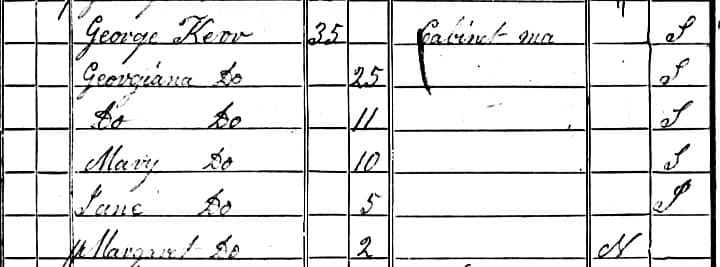 George Kerr 35 Cabinet ma S
Georgiana Do 25 S
Do Do 11 S
Mary Do 10 S
Jane Do 5 S
Margaret Do 2 N